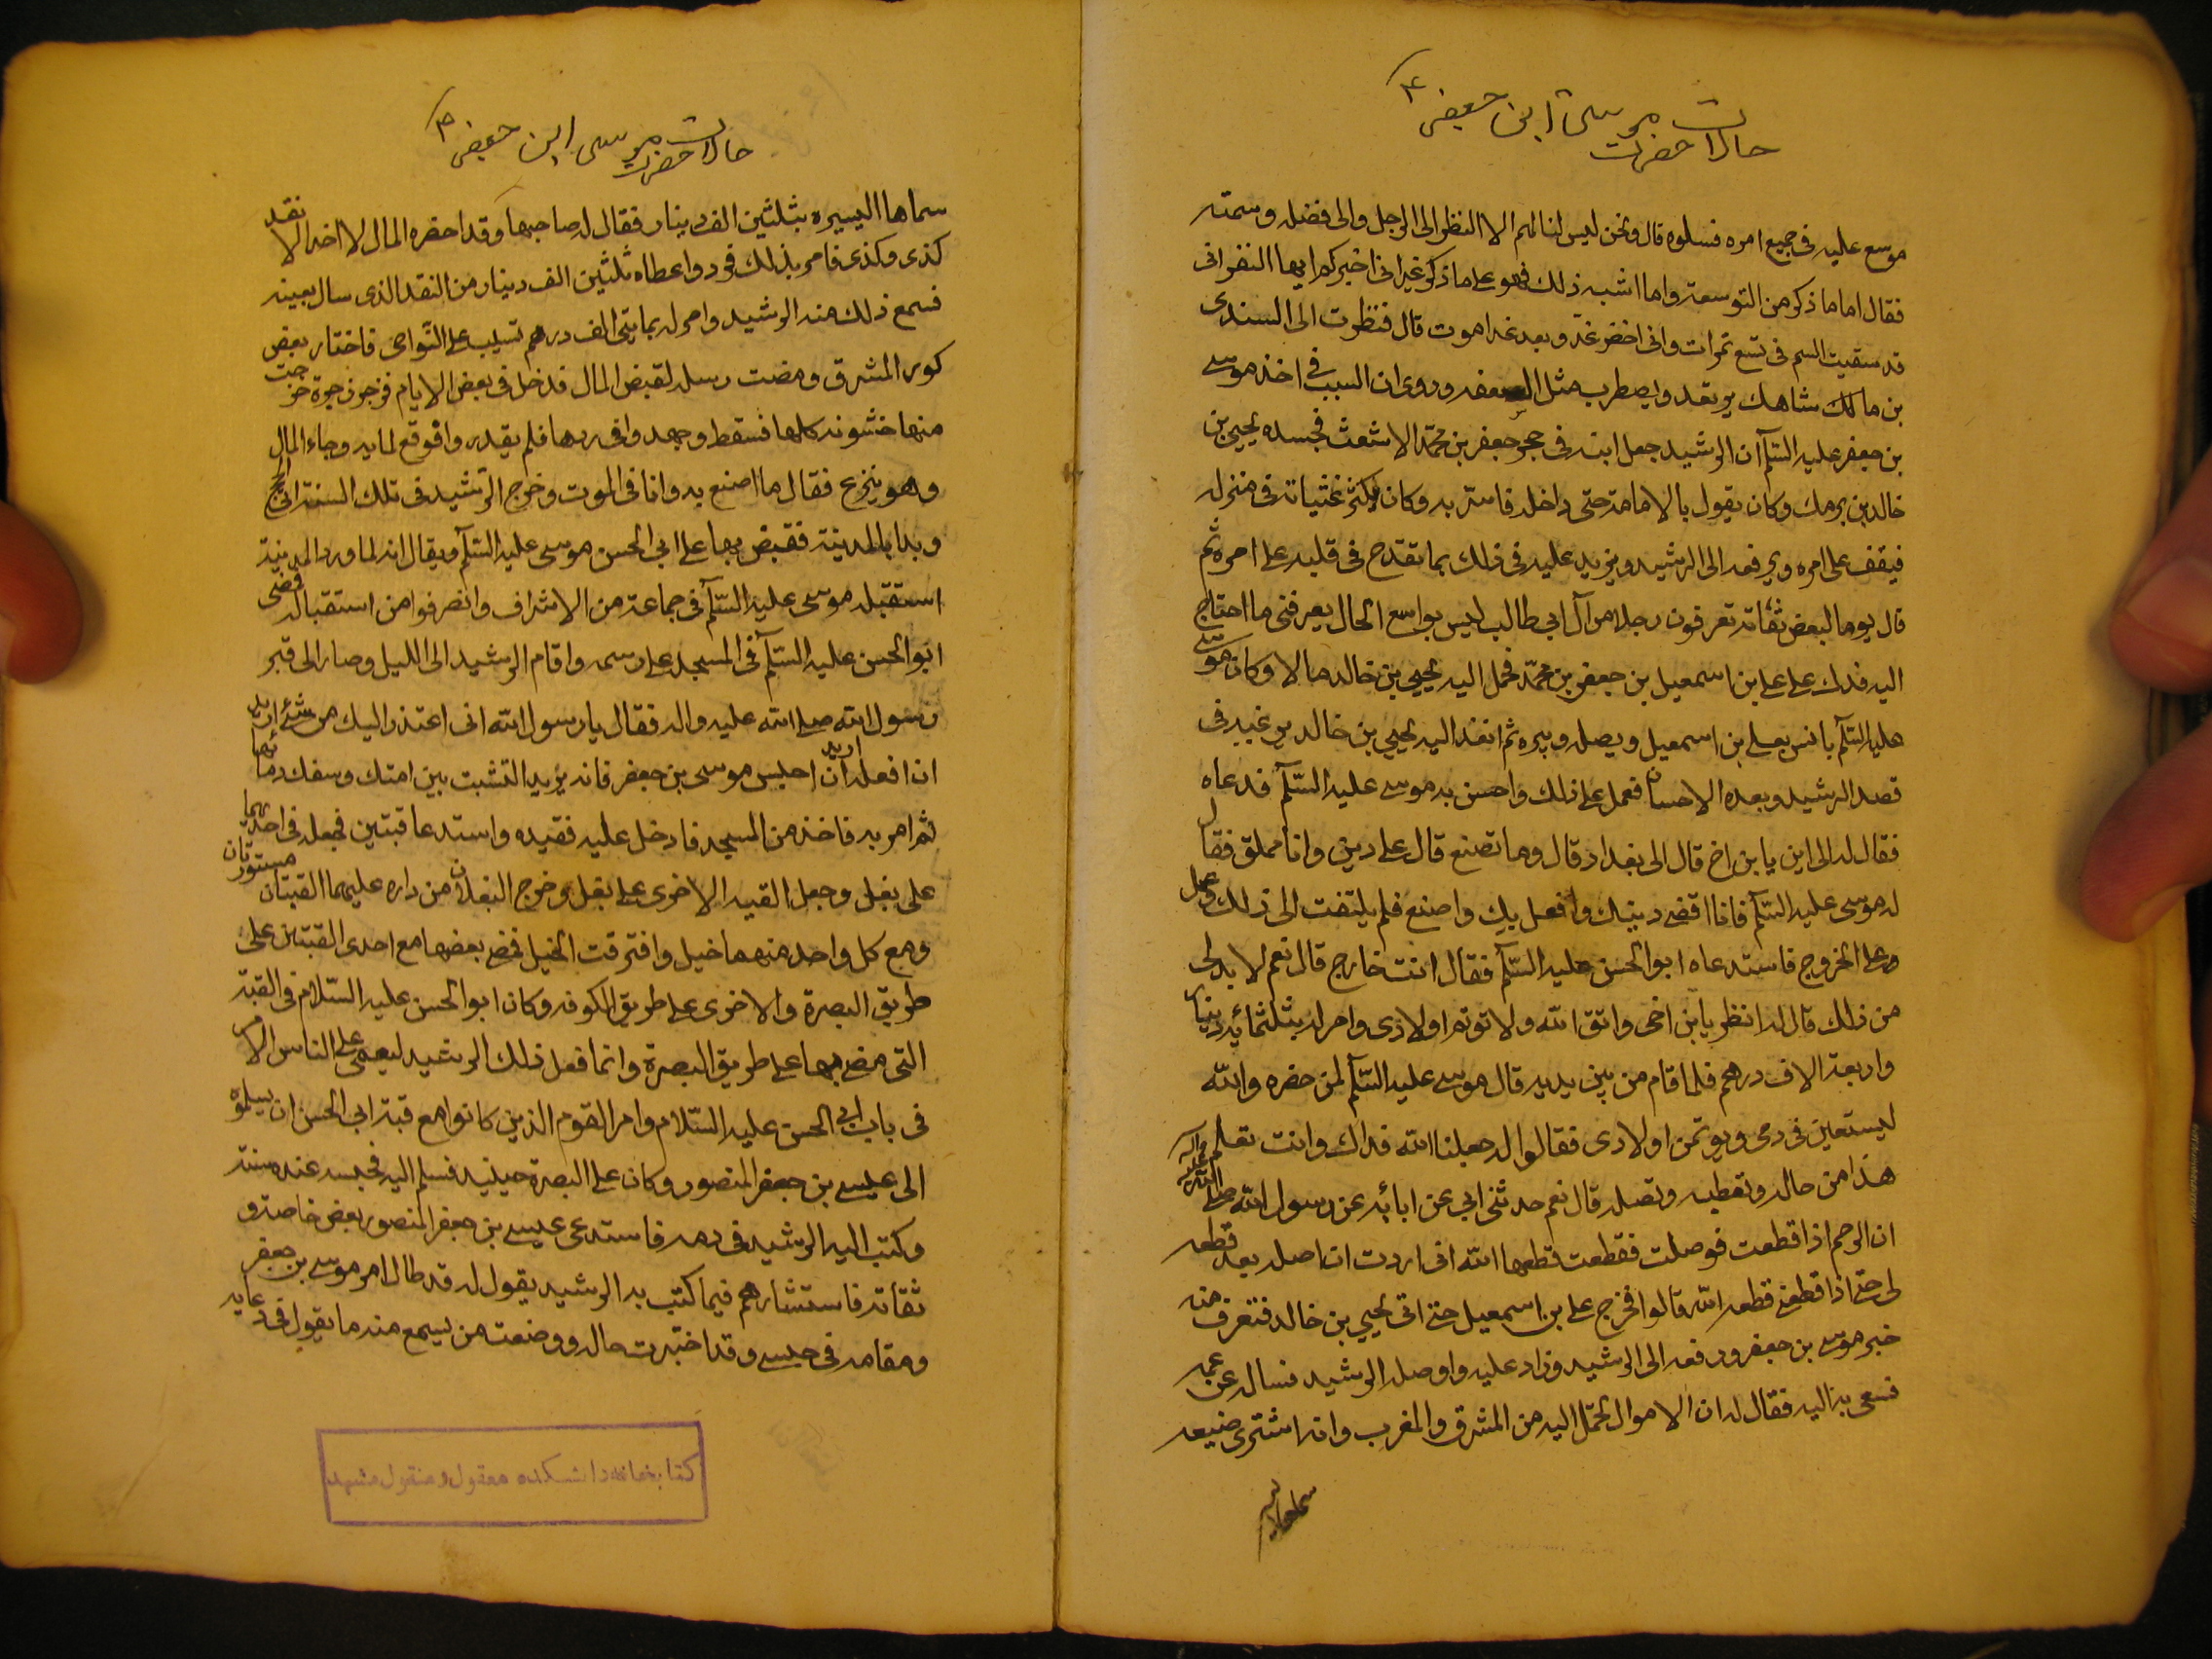 حالات حضرت موسی ابن جعفر ۴
موسع عليه فى جميع امره فسلوه قال ونحن ليس لنا لهم الا النظر الى الرجل والى فضله وسمته
فقال اما ما ذكر من التوسعة واما اشبه ذلك فهو على ما ذكر غير انى اخبركم ايها النفر انى
قد سقيت السم فى تسع تمرات وانى اخضر غد وبعد غد اموت قال فنظرت الى السندى
بن مالك شاهك يرتعد ويضطرب مثل السعفه وروى ان السبب فى اخذ موسى
بن جعفر عليه السّلم ان الرشيد جعل ابنه فى حجر جعفر بن محمّد الاشعث فحسده يحيى بن
خالد بن برمك وكان يقول بالامامة حتى داخله فانس به وكان يكثر غشيانه فى منزله
فيقف على امره ويرفعه الى الرشيد ويزيد عليه فى ذلك بما تقدح فى قلبه على امره ثم
قال يوما لبعض ثقاته تعرفون رجلا من آل ابي طالب ليس بواسع الحال يعرفنى ما احتاج
اليه فدل على على بن اسمعيل بن جعفر بن محمّد فحمل اليه يحيى بن خالد مالا وكان موسى
عليه السّلم يانس بعلى بن اسمعيل ويصله ويبره ثم انفذ اليه يحيى بن خالد يرغبه فى
قصد الرشيد وبعده الاحسان فعمل على ذلك واحسن به موسى عليه السّلم فدعاه
فقال له الى اين يا بن اخ قال الى بغداد قال وما تصنع قال على دين وانا مملق فقال
له موسى عليه السّلم فانا اقضى دينك وافعل بك واصنع فلم يلتفت الى ذلك وعمل
وعلى الخروج فاستدعاه ابو الحسن عليه السّلم فقال انت خارج قال نعم لا بد لى
من ذلك قال له انظر يا بن اخى واتق الله ولا توتم اولادى وامر له بثلثمائه دينار
واربعة الاف درهم فلما قام من بين يديه قال موسى عليه السّلم لمن حضره والله
ليستعين فى دمى ويوتمن اولادى فقالوا له جعلنا الله فداك وانت تعلم
هذا من حاله وتعطيه وتصله قال نعم حدثنى ابي عن ابائه عن رسول الله صلى الله عليه واله
ان الرحم اذا قطعت فوصلت فقطعت قطعها الله انى اردت ان اصله بعد قطعه
لى حتى اذا قطعنى قطعه الله قالوا فخرج على بن اسمعيل حتى اتى يحيى بن خالد فتعرف منه
خبر موسى بن جعفر ورفعه الى الرشيد وزاد عليه واوصله الرشيد فساله عن عمه
فسعى به اليه فقال له ان الاموال تحمل اليه من المشرق والمغرب وانه اشترى ضيعه
سماها
حالات حضرت موسی ابن جعفر ۴
سماها اليسيره بثلثين الف دينار فقال له صاحبها وقد احضره المال لا اخذ الا نقد
كذى وكذى فامر بذلك فرد واعطاه ثلثين الف دينار من النقد الذى سال بعينه
فسمع ذلك منه الرشيد وامر له بمايتى الف درهم تسبب على النّواحى فاختار بعض
كور المشرق ومضت رسله لقبض المال فدخل فى بعض الايام فزحر زحرة خرجت
منها حشوته كلها فسقط وجهد وافى ردها فلم يقدر واقوقع لما به وجاءه المال
وهو ينزع فقال ما اصنع به وانا فى الموت وخرج الرّشيد فى تلك السنة الى الحج
وبدا بالمدينة فقبض بها على ابى الحسن موسى عليه السّلم ويقال انه لما ورد المدينة
استقبله موسى عليه السّلم فى جماعة من الاشراف وانصرفوا من استقباله فمضى
ابو الحسن عليه السّلم فى المسجد على رسمه واقام الرشيد الى الليل وصار الى قبر
رسول الله صلى الله عليه واله فقال يا رسول الله انى اعتذر اليك من شئ اريد
ان افعله اريد ان احبس موسى بن جعفر فانه يريد التشتت بين امتك وسفك دمائها
ثم امر به فاخذ من المسجد فادخل عليه فقيده واستدعا قبتين فجعله فى احديهما
على بغل وجعل القبه الاخرى على بغل وخرج البغلان من داره عليهما القبتان مستورتان
ومع كل واحد منهما خيل وافترقت الخيل فمضى بعضها مع احدى القبتين على
طريق البصرة والاخرى على طريق الكوفه وكان ابو الحسن عليه السّلام فى القبّة
التى مضى بها على طريق البصرة وانما فعل ذلك الرشيد ليعمى على الناس الامر
فى باب ابى الحسن عليه السّلام وامر القوم الذين كانوا مع قبة ابي الحسن ان يسلموه
الى عيسى بن جعفر المنصور وكان على البصرة حينيذ فسلم اليه فحبسه عنده سنة
وكتب اليه الرشيد فى دمه فاستدعى عيسى بن جعفر المنصور بعض خاصته و
ثقاته فاستشارهم فيما كتب به الرشيد يقول له قد طال امر موسى بن جعفر
ومقامه فى حبسى وقد اختبرت حاله ووضعت من يسمع منه ما يقول فى دعايه
كتابخانه دانشكده معقول و منقول مشهد